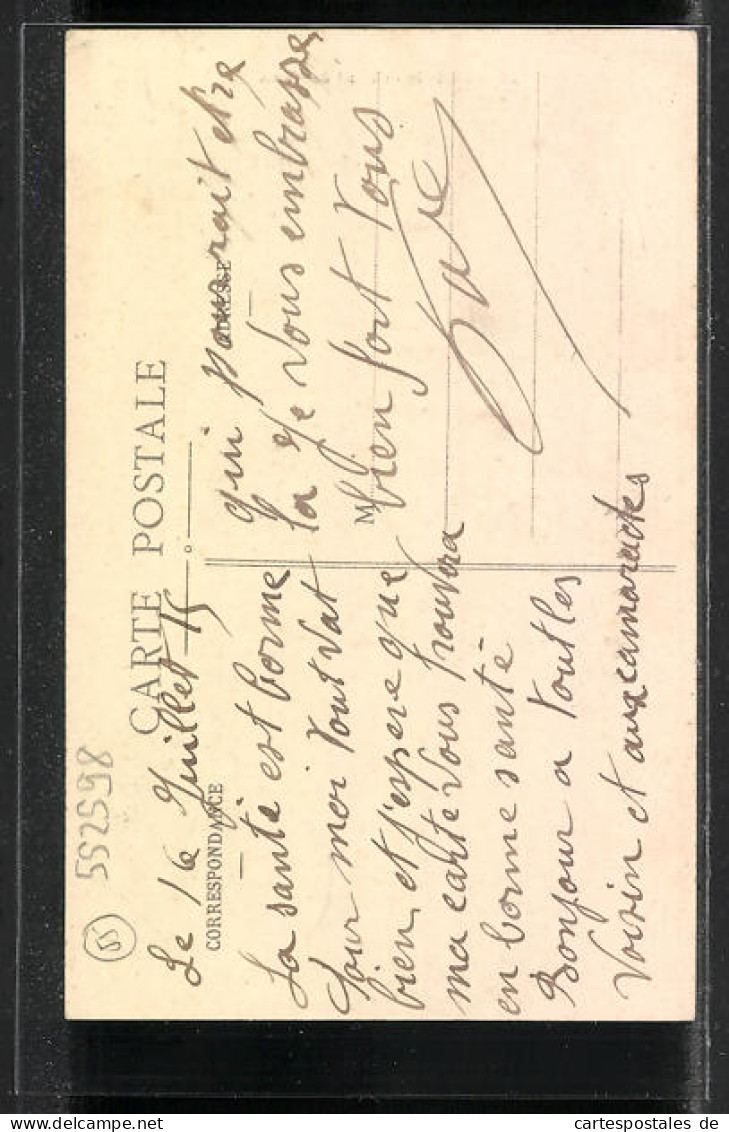 552598
55
CARTE POSTALE
CORRESPONDANCE
ADRESSE
M
Le 16 Juillet 15
La santé est bonne
Pour moi tout vat
bien, et j'espere que
ma carte vous trouvera
en bonne santé
Bonjour a tout les
Voisin et aux camarades
qui pourrait etre
la Je vous embrasse
bien fort tous
cartespostales de